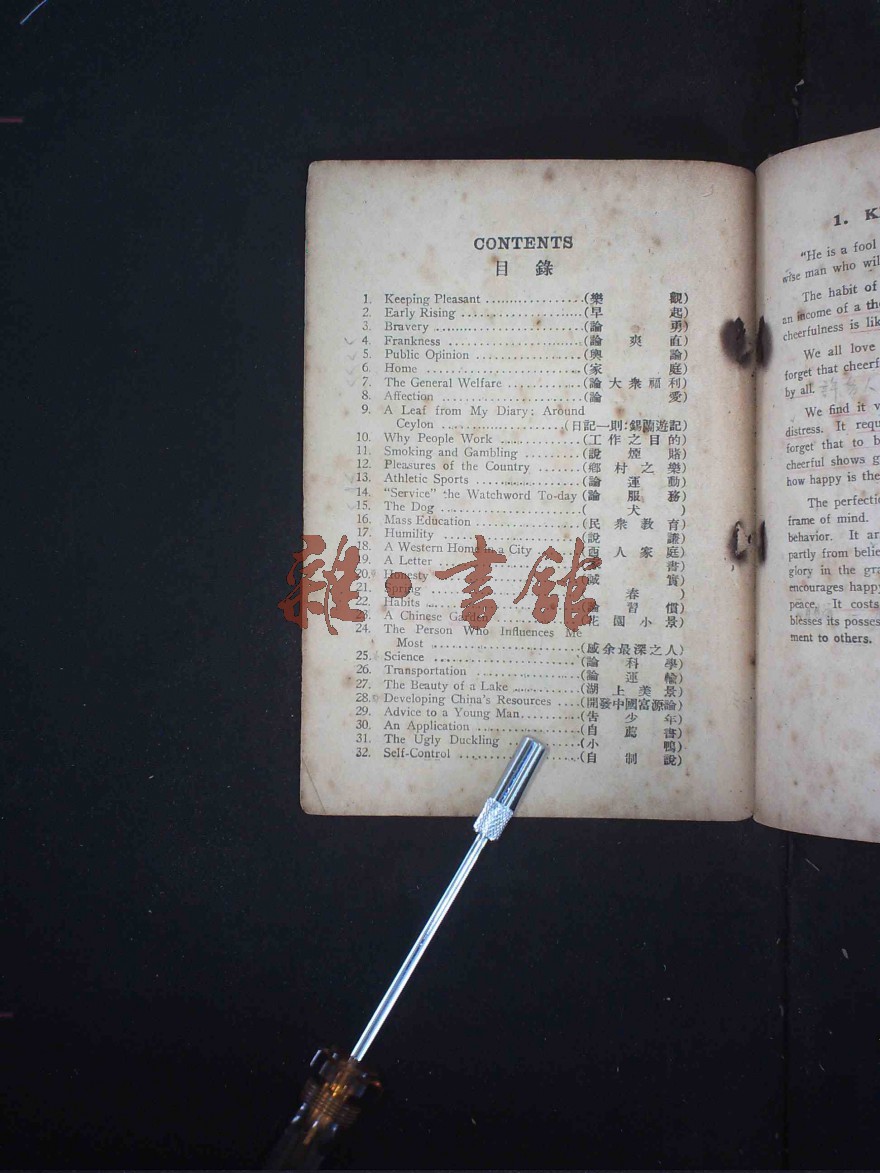 CONTENTS
目錄
1. Keeping Pleasant ....................(樂觀)
2. Early Rising ....................(早起)
3. Bravery ....................(論勇)
4. Frankness ....................(論爽直)
5. Public Opinion ....................(輿論)
6. Home ....................(家庭)
7. The General Welfare ....................(論大衆福利)
8. Affection ....................(論愛)
9. A Leaf from My Diary: Around
Ceylon ....................(日記一則:錫蘭遊記)
10. Why People Work ....................(工作之目的)
11. Smoking and Gambling ....................(說煙賭)
12. Pleasures of the Country ....................(鄉村之樂)
13. Athletic Sports ....................(論運動)
14. "Service" the Watchword To-day (論服務)
15. The Dog ....................(犬)
16. Mass Education ....................(民衆教育)
17. Humility ....................(說謙)
18. A Western Home in a City ....................(西人家庭)
19. A Letter ....................(書)
20. Honesty ....................(誠實)
21. Spring ....................(春)
22. Habits ....................(論習慣)
23. A Chinese Garden ....................(花園小景)
24. The Person Who Influences Me
Most ....................(感余最深之人)
25. Science ....................(論科學)
26. Transportation ....................(論運輸)
27. The Beauty of a Lake ....................(湖上美景)
28. Developing China's Resources ....(開發中國富源論)
29. Advice to a Young Man....................(告少年)
30. An Application ....................(自薦書)
31. The Ugly Duckling ....................(小鴨)
32. Self-Control ....................(自制說)
雜·書館
1. K
"He is a fool
wise man who wil
The habit of
an income of a tho
cheerfulness is lik
We all love
forget that cheerf
by all. 許多人
We find it v
distress. It requ
forget that to b
cheerful shows g
how happy is the
The perfectio
frame of mind.
behavior. It ar
partly from belie
glory in the gra
encourages happ
peace. It costs
blesses its posses
ment to others.